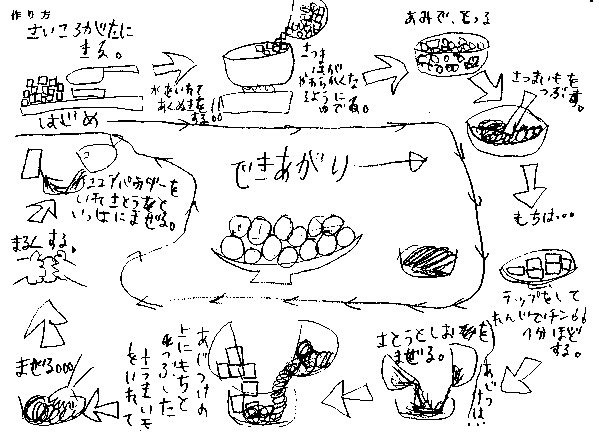 作り方
さいころがたに
きる。
はじめ
水をいれて
あくぬきを
する。。
さつま
いもが
やわらかくな
るように
ゆでる。
あみで、とる
さつまいもを
つぶす。
もちは...
ラップをして
れんじでチン
1分ほど
する。
さとうとしおを
まぜる。
あじつけ
あじつけの
上にもちと
さつまいも
をいれて
まぜる。。。
まるくする。
ココアパウダーを
いれさとうをと
いっしょにまぜる。
できあがり